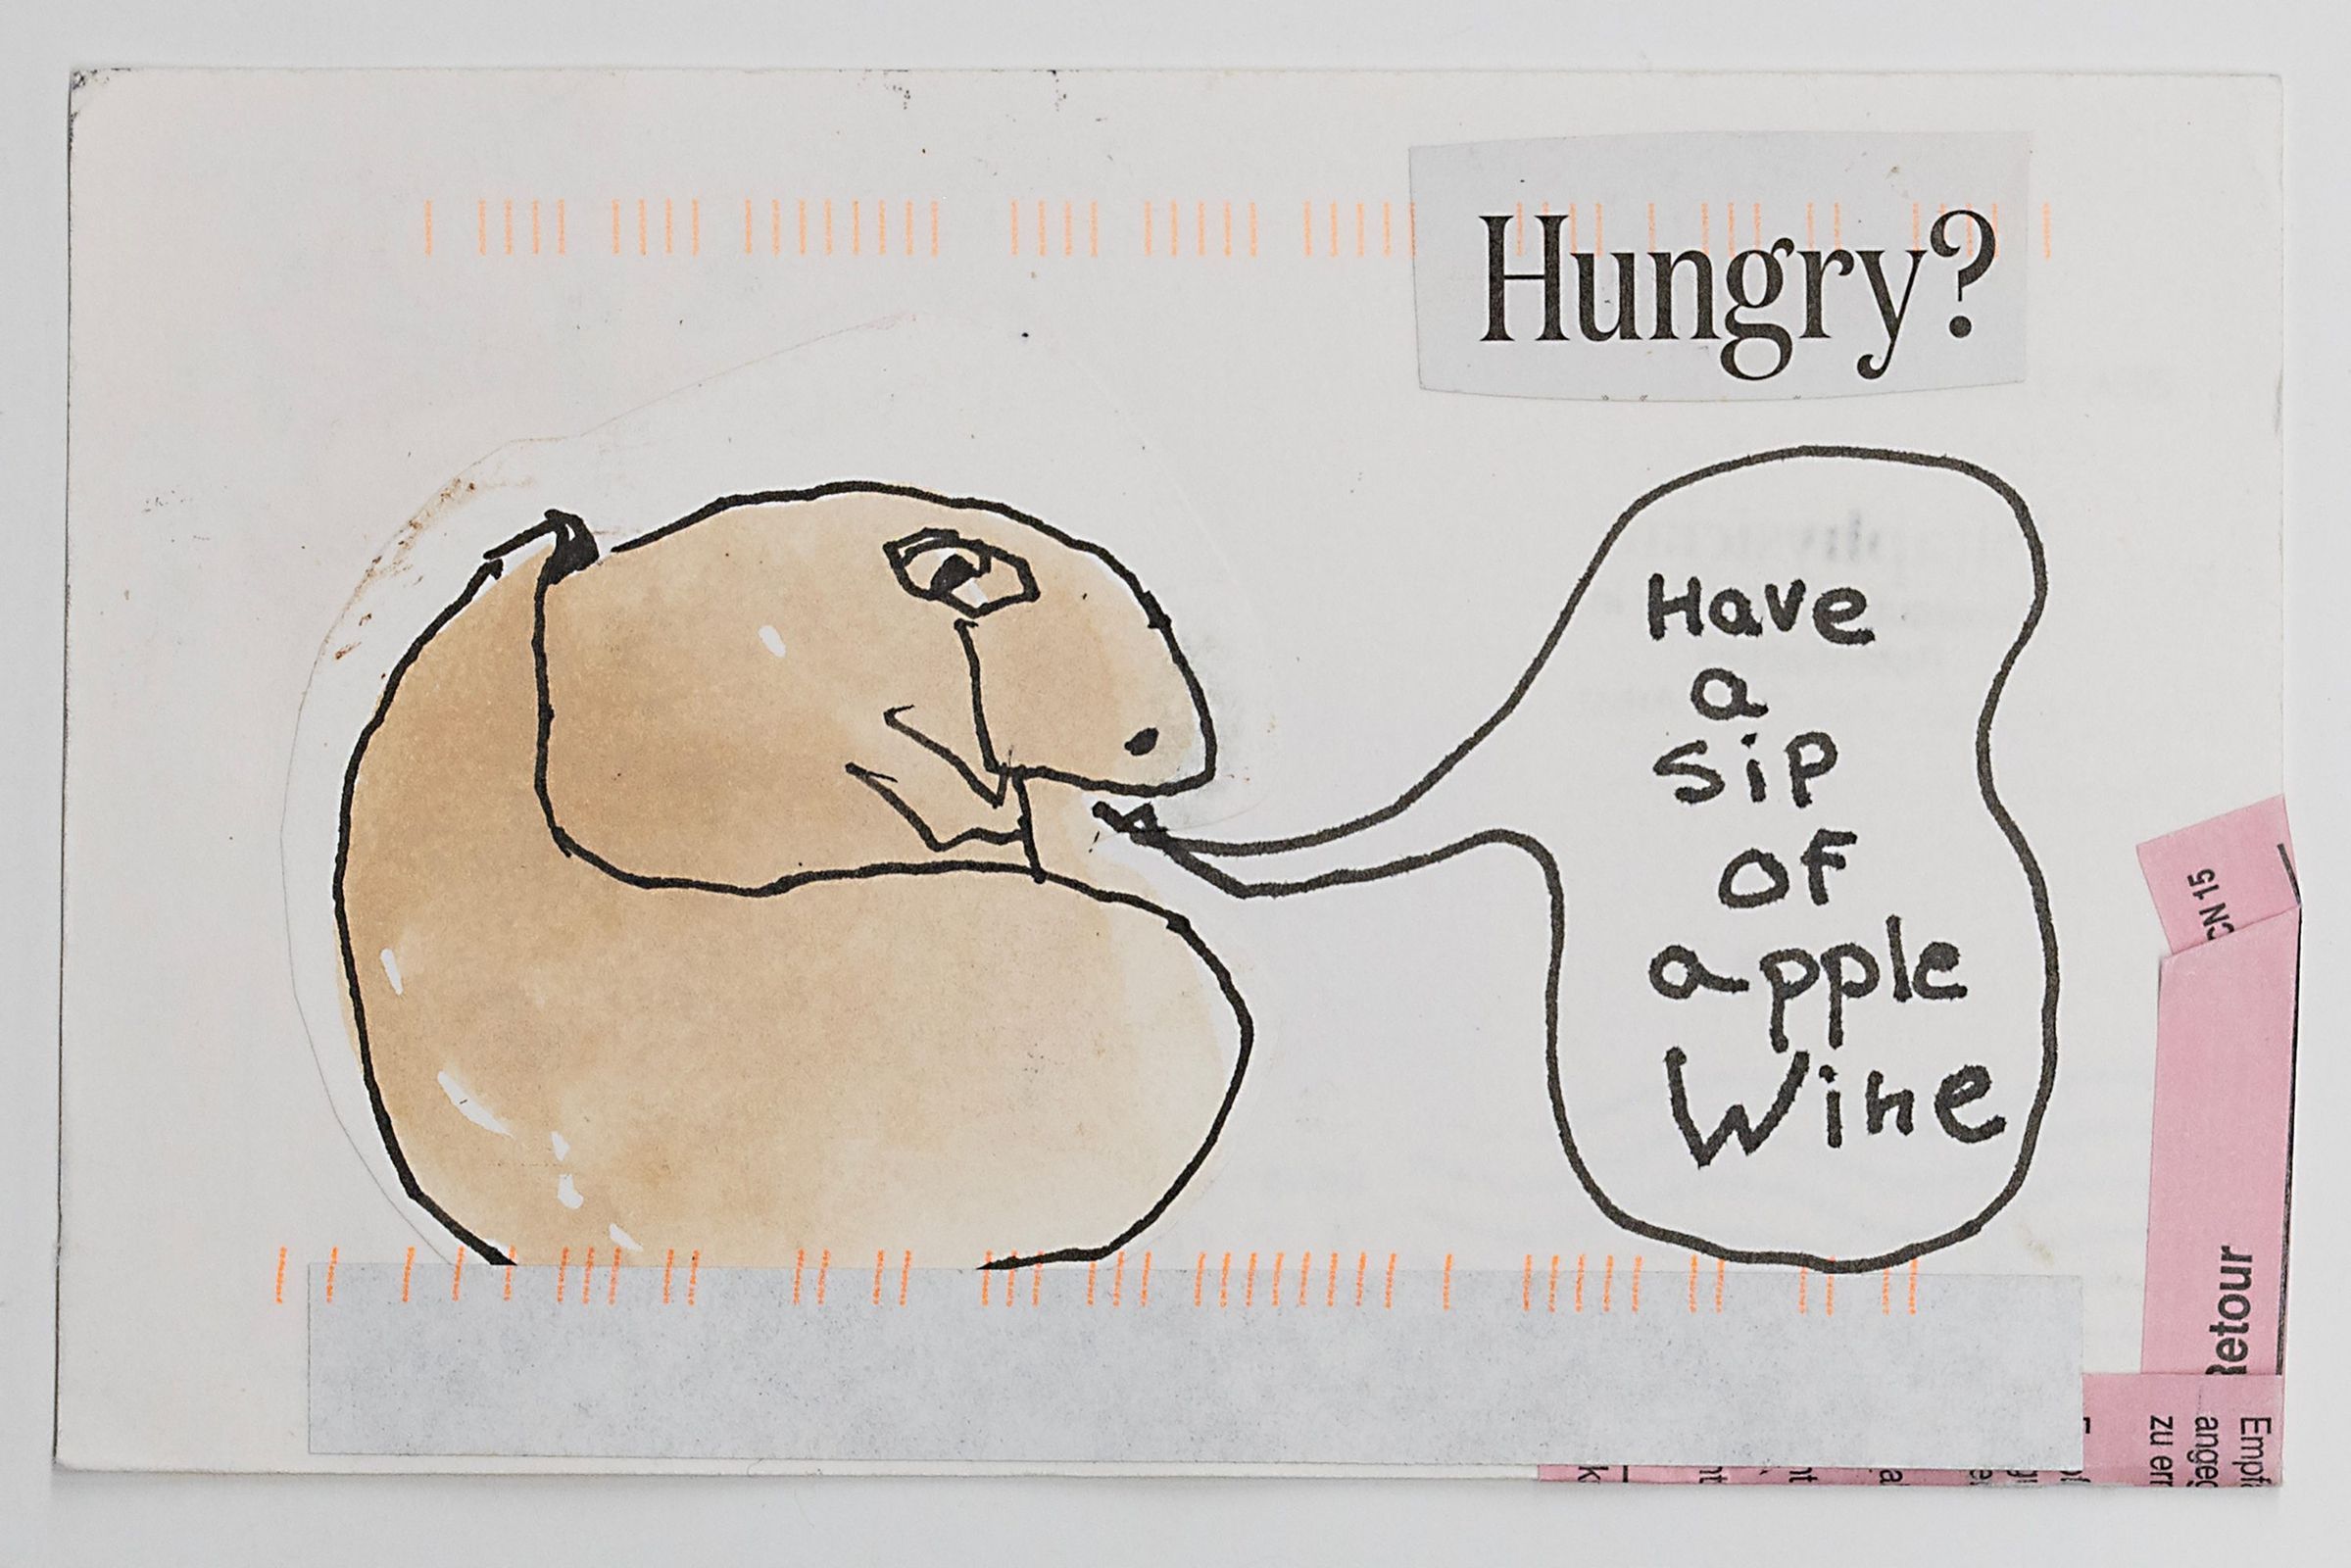 Hungry?
Have
a
sip
of
apple
Wine
CN 15
Retour
Empf
angeg
zu err